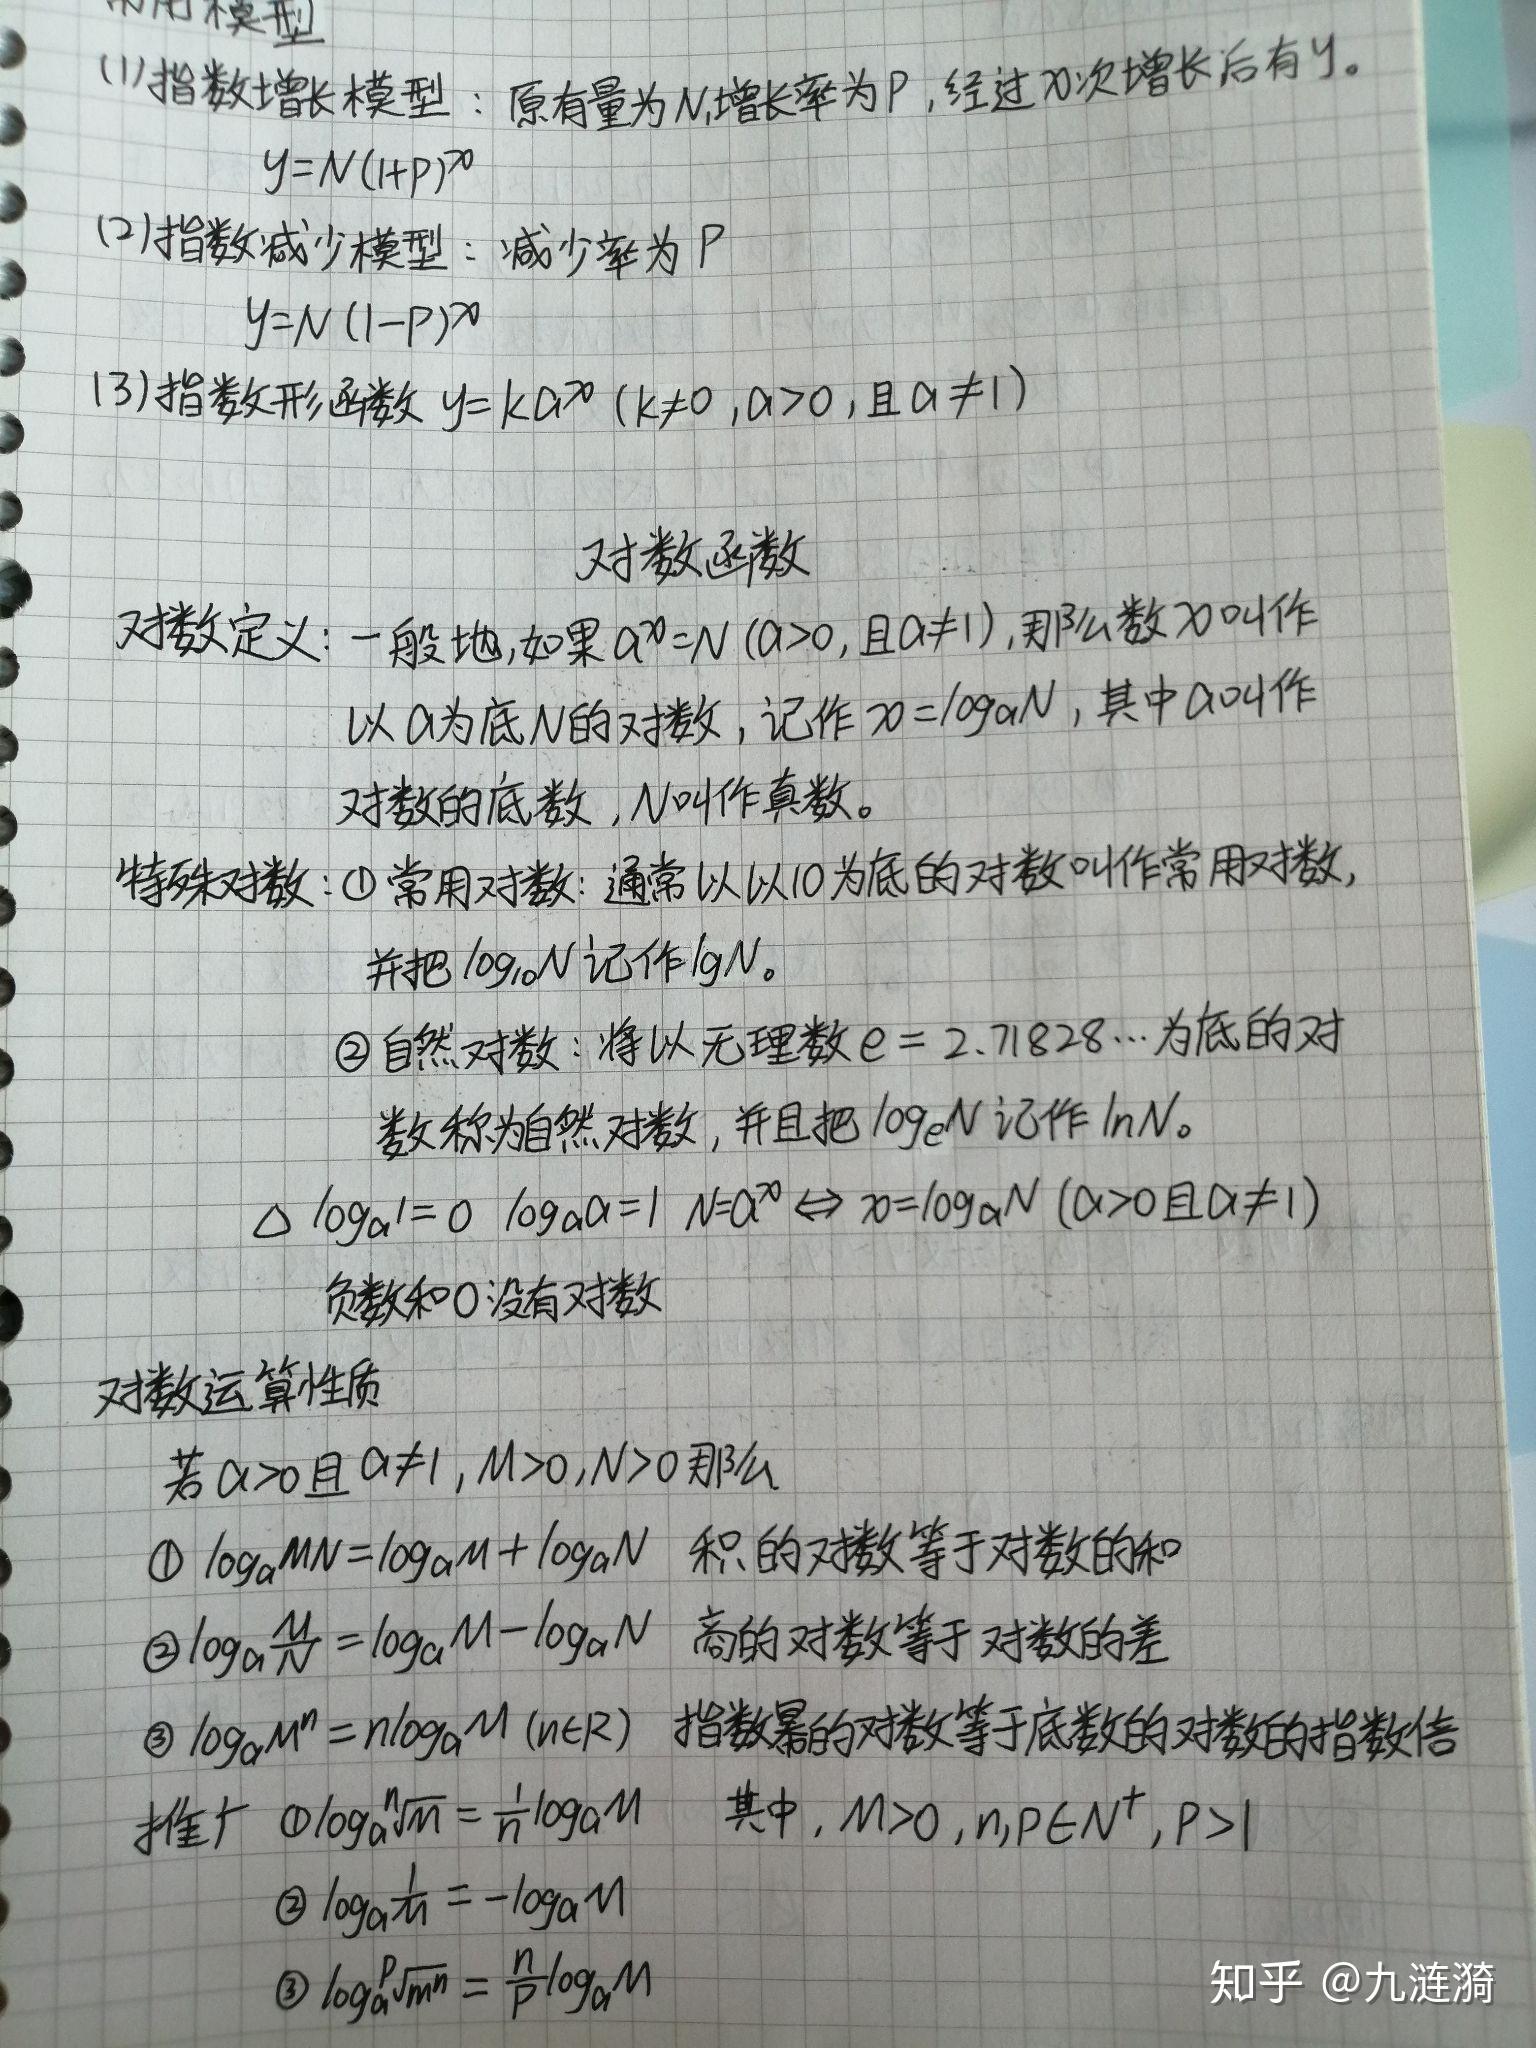 常用模型
(1)指数增长模型：原有量为N,增长率为P,经过x次增长后有y。
y=N(1+P)^x
(2)指数减少模型：减少率为P
y=N(1-P)^x
(3)指数形函数 y=ka^x (k≠0,a>0,且a≠1)
对数函数
对数定义：一般地,如果a^x=N(a>0,且a≠1),那么数x叫作
以a为底N的对数,记作x=logₐN,其中a叫作
对数的底数,N叫作真数。
特殊对数：①常用对数：通常以以10为底的对数叫作常用对数,
并把log₁₀N记作lgN。
②自然对数：将以无理数e=2.71828…为底的对
数称为自然对数,并且把logₑN记作lnN。
△ logₐ1=0 logₐa=1 N=a^x⇔x=logₐN (a>0且a≠1)
负数和0没有对数
对数运算性质
若a>0且a≠1,M>0,N>0那么
① logₐMN=logₐM+logₐN 积的对数等于对数的和
② logₐ M/N = logₐM-logₐN 商的对数等于对数的差
③ logₐMⁿ=nlogₐM (n∈R) 指数幂的对数等于底数的对数的指数倍
推广 ① logₐ ⁿ√m = 1/n logₐM 其中,M>0,n,p∈N⁺,P>1
② logₐ 1/M = -logₐM
③ logₐ ᵖ√mⁿ = n/p logₐM
知乎 @九涟漪